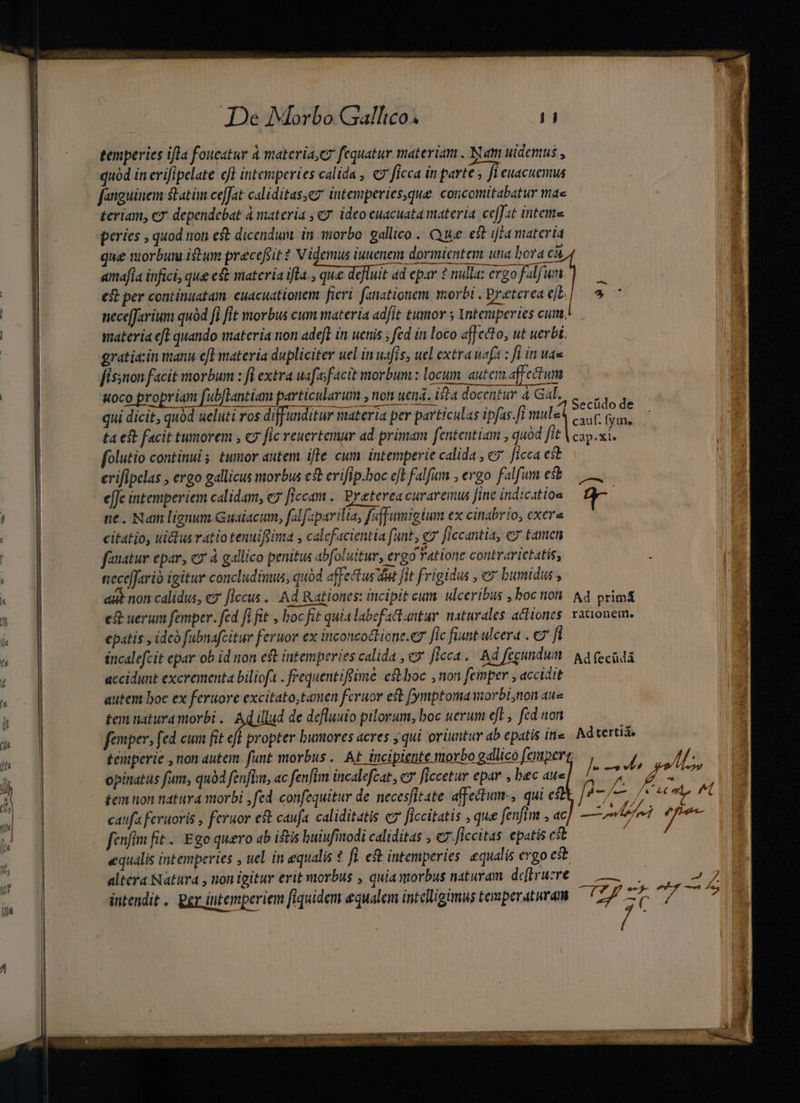 De Morbo Gallico.
11
temperies ista foueatur à materia, & sequatur materiam. Nam uidemus,
quòd in erisipelate est intemperies calida, & sicca in parte, si euacuemus
sanguinem statim cessat caliditas, & intemperies, quæ concomitabatur ma-
teriam, & dependebat à materia, & ideo euacuata materia cessat inteme
peries, quod non est dicendum in morbo gallico. Quæ est ista materia
quæ morbum istum præcessit? Videmus iuuenem dormientem una hora cũ
amasia infici, quæ est materia ista, quæ defluit ad epar? nulla: ergo falsum
est per continuatam euacuationem fieri sanationem morbi. Præterea est
necessarium quòd si sit morbus cum materia adsit tumor; Intemperies cum
materia est quando materia non adest in uenis, sed in loco affecto, ut uerbi
gratia: in manu est materia dupliciter uel in uasis, uel extra uasa: si in ua-
sis; non facit morbum: si extra uasa; facit morbum: locum autem affectum
uoco propriam substantiam particularum, non uenã. ista docentur à Gal.
qui dicit, quòd ueluti ros diffunditur materia per particulas ipsas. si mul-
ta est facit tumorem, & sic reuertemur ad primam sententiam, quòd sit
solutio continui; tumor autem iste cum intemperie calida, & sicca est
erisipelas, ergo gallicus morbus est erisip. hoc est falsum, ergo falsum est
esse intemperiem calidam, & siccam. Præterea curaremus sine indicatio-
ne. Nam lignum Guaiacum, salsaparilia, suffumigium ex cinabrio, exer-
citatio, uictus ratio tenuissima, calefacientia sunt, & siccantia, & tamen
sanatur epar, & à gallico penitus absoluitur, ergo ratione contrarietatis,
necessariò igitur concludimus, quòd affectus aut sit frigidus, & humidus,
aut non calidus, & siccus. Ad Rationes: incipit cum ulceribus, hoc non
est uerum semper. sed si fit, hoc fit quia labefactantur naturales actiones
epatis, ideò subnascitur feruor ex inconcoctione. & sic fiunt ulcera. & si
incalescit epar ob id non est intemperies calida, & sicca. Ad secundum
accidunt excrementa biliosa. frequentissimè est hoc, non semper, accidit
autem hoc ex feruore excitato, tamen feruor est symptoma morbi, non au-
tem natura morbi. Ad illud de defluuio pilorum, hoc uerum est, sed non
semper, sed cum fit est propter humores acres, qui oriuntur ab epatis in-
temperie, non autem sunt morbus. At incipiente morbo gallico semper
opinatus sum, quòd sensim, ac sensim incalescat, & siccetur epar, hæc au-
tem non natura morbi, sed consequitur de necessitate affectum, qui est
causa feruoris, feruor est causa caliditatis & siccitatis, quæ sensim, ac
sensim fit. Ego quæro ab istis huiusmodi caliditas, & siccitas epatis est
æqualis intemperies, uel in æqualis? si est intemperies æqualis ergo est
altera Natura, non igitur erit morbus, quia morbus naturam destruere
intendit. Per intemperiem siquidem æqualem intelligimus temperaturam
Secũdo de
cauf. sym.
cap. xi.
Ad primã
rationem.
Ad secũdã
Ad tertiã.